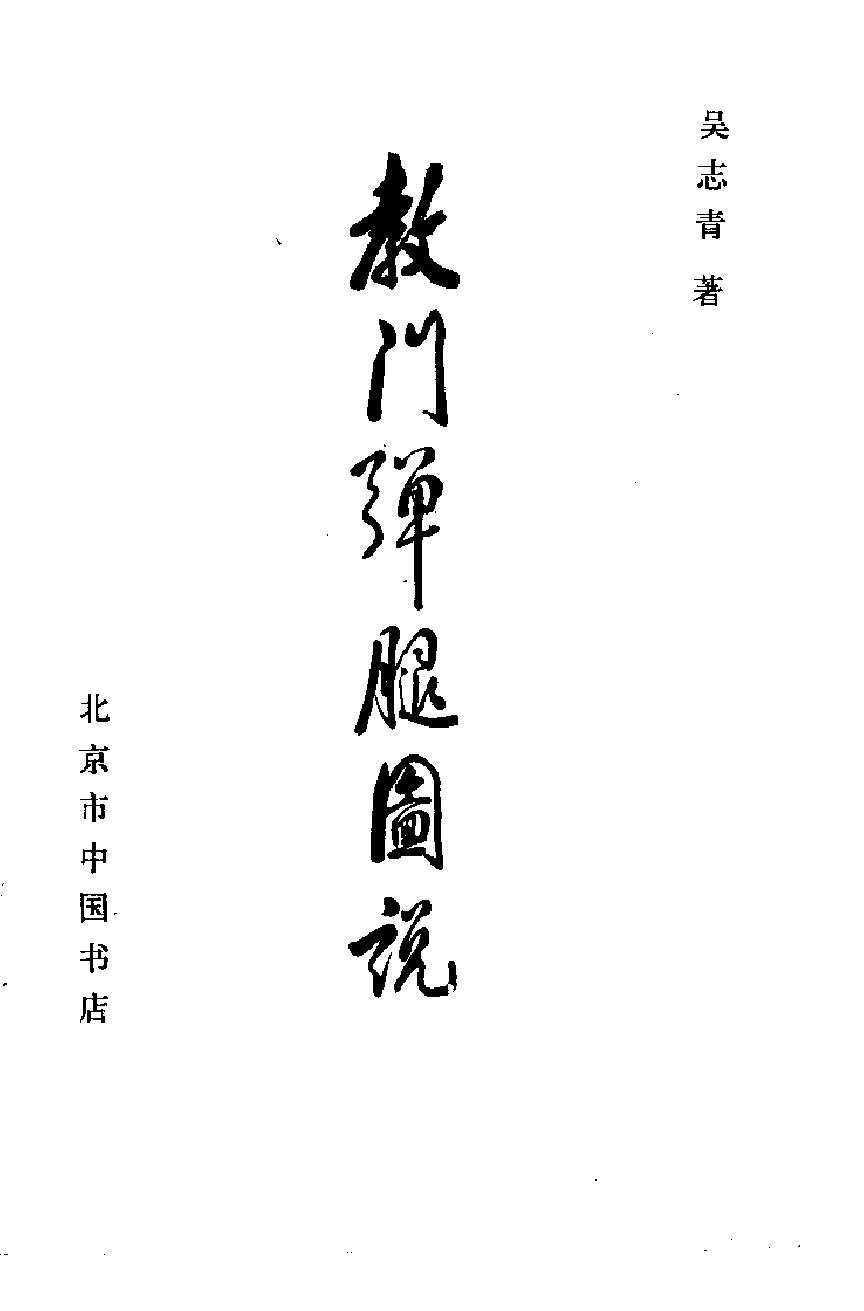 吴志青 著
教门弹腿圖説
北京市中国书店